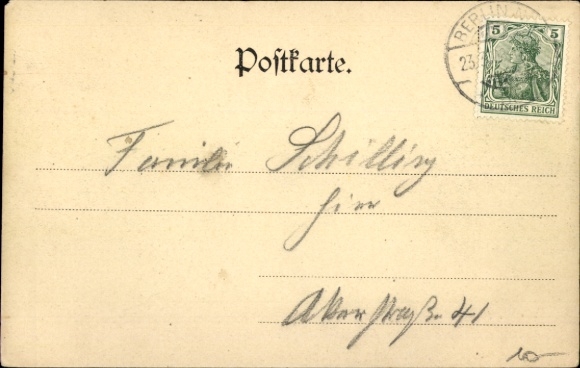 BERLIN N
23.
5 5
DEUTSCHES REICH
Postkarte.
Familie Schilling
hier
Akerstraße 41
10